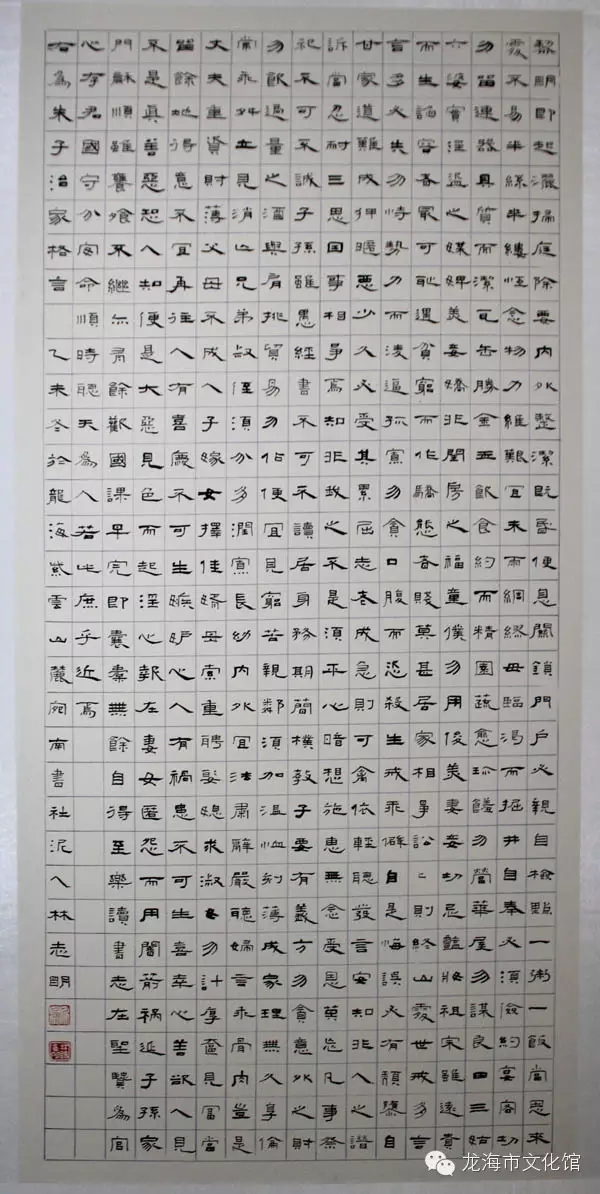 黎明即起灑掃庭除要內外整潔既昏便息關鎖門戶必親自檢點一粥一飯當思來
處不易半絲半縷恆念物力維艱宜未雨綢繆毋臨渴而掘井自奉必須儉約宴客切
勿留連器具質而潔瓦缶勝金玉飲食約而精園蔬愈珍饈勿營華屋勿謀良田三姑
六婆實淫盜之媒婢美妾嬌非閨房之福童僕勿用俊美妻妾切忌豔妝祖宗雖遠貴
而生諂容者最可恥遇貧窮而作驕態者賤莫甚居家相爭訟訟則終凶處世戒多言
言多必失勿恃勢力而凌逼孤寡勿貪口腹而恣殺生戒乖僻自是悔誤必有頹墮自
甘家道難成狎暱惡少久必受其累屈志老成急則可禽依輕聽發言安知非人譖
訴當忍耐三思因事相爭焉知非我之不是須平心暗想施惠無念受恩莫忘凡事祭
祀不可不誠子孫雖愚經書不可不讀居身務期簡樸教子要有義方勿貪意外之財
勿飲過量之酒與肩挑貿易勿佔便宜見窮苦親鄰須加溫恤刻薄成家理無久享倫
常乖舛立見消亡兄弟叔侄須分多潤寡長幼內外宜法肅辭嚴聽婦言乖骨肉豈是
丈夫重資財薄父母不成人子嫁女擇佳婿毋索重聘娶媳求淑女勿計厚奩見富當
留餘地得意不宜再往人有喜慶不可生嫉妒心人有禍患不可生喜幸心善欲人見
不是真善惡恐人知便是大惡見色而起淫心報在妻女匿怨而用闇箭禍延子孫家
門龢順雖饔飧不繼亦有餘歡國課早完即囊橐無餘自得至樂讀書志在聖賢為官
心存君國守分安命順時聽天為人若此庶乎近焉
右為朱子治家格言 乙未冬於龍海紫雲山麓宛南書社泥人林志明
龙海市文化馆